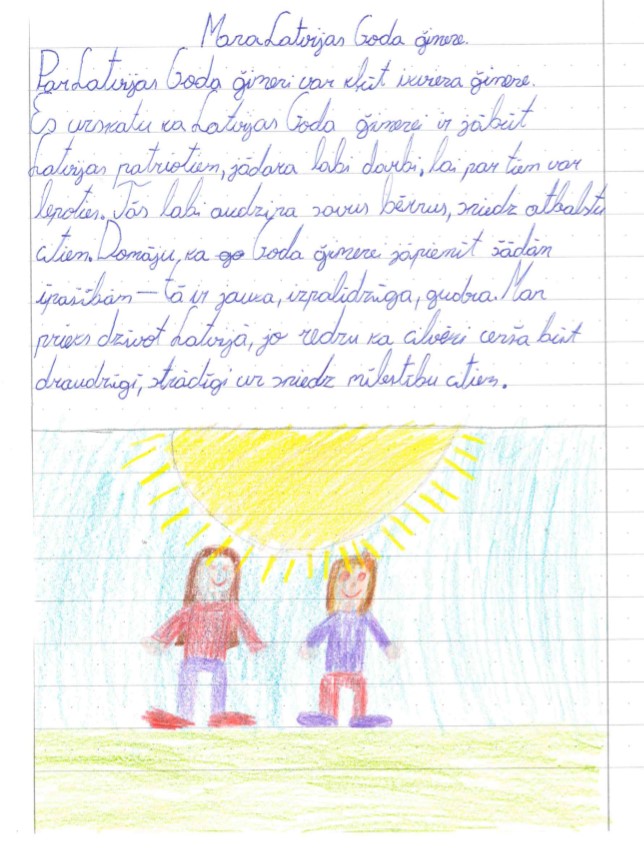 Mana Latvijas Goda ģimene.
Par Latvijas Goda ģimeni var kļūt ikviena ģimene.
Es uzskatu ka Latvijas Goda ģimenei ir jābūt
Latvijas patriotiem, jādara labi darbi, lai par tiem var
lepoties. Tās labi audzina savus bērnus, sniedz atbalstu
citiem. Domāju, ka go Goda ģimenei jāpiemīt šādām
īpašībām – tā ir jauka, izpalīdzīga, gudra. Man
prieks dzīvot Latvijā, jo redzu ka cilvēki cenšas būt
draudzīgi, strādīgi un sniedz mīlestību citiem.